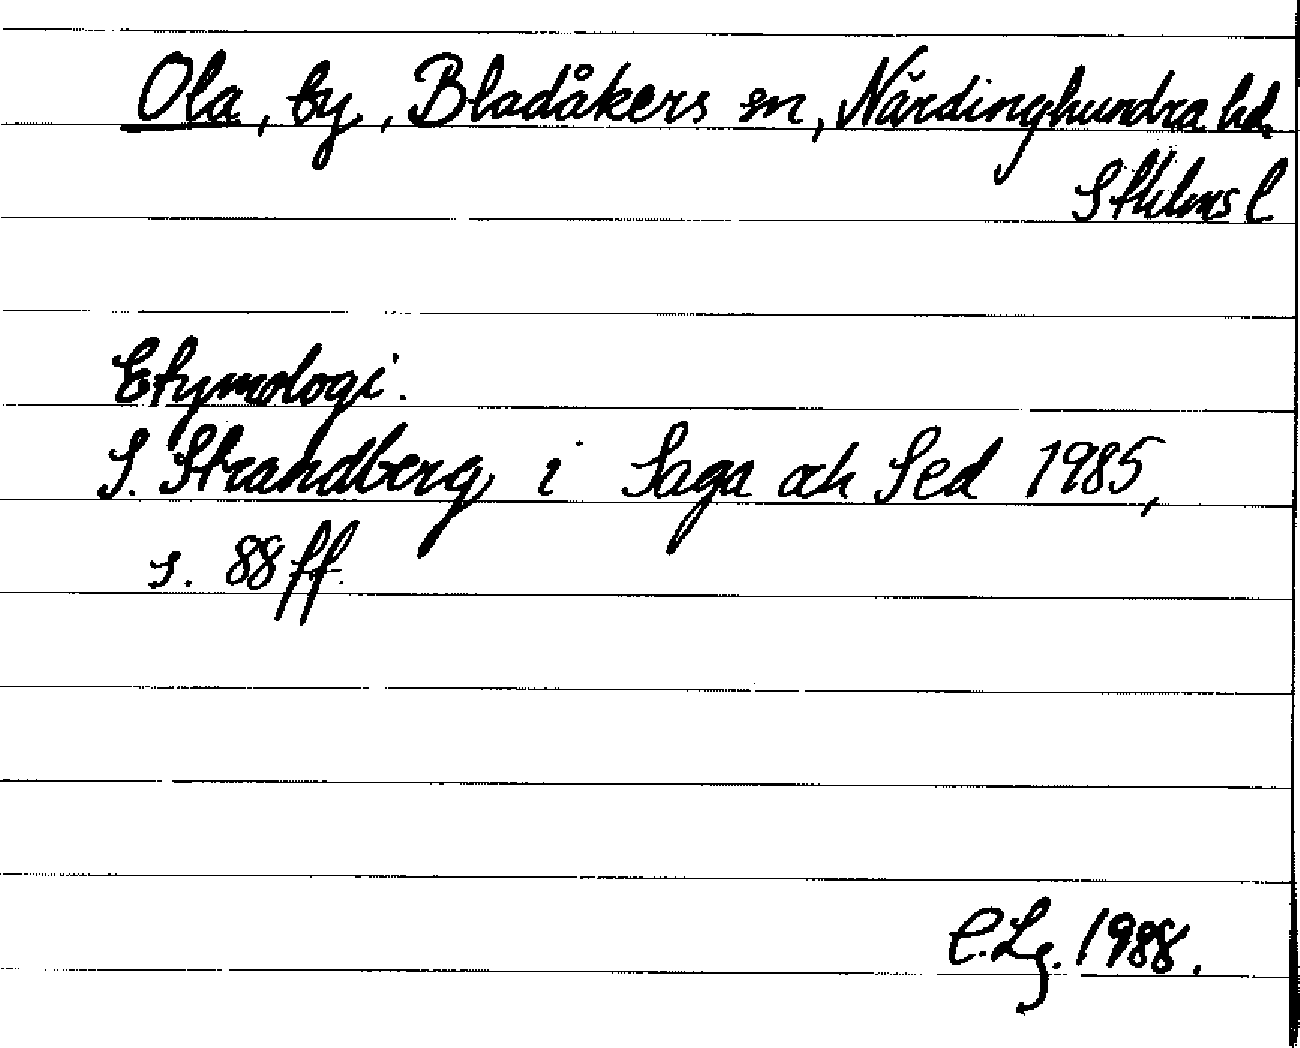 Ola, by, Bladåkers sn, Närdinghundra hd,
Sthlms l
Etymologi.
S. Strandberg i Saga och Sed 1985,
s. 88 ff.
C.Lg. 1988.